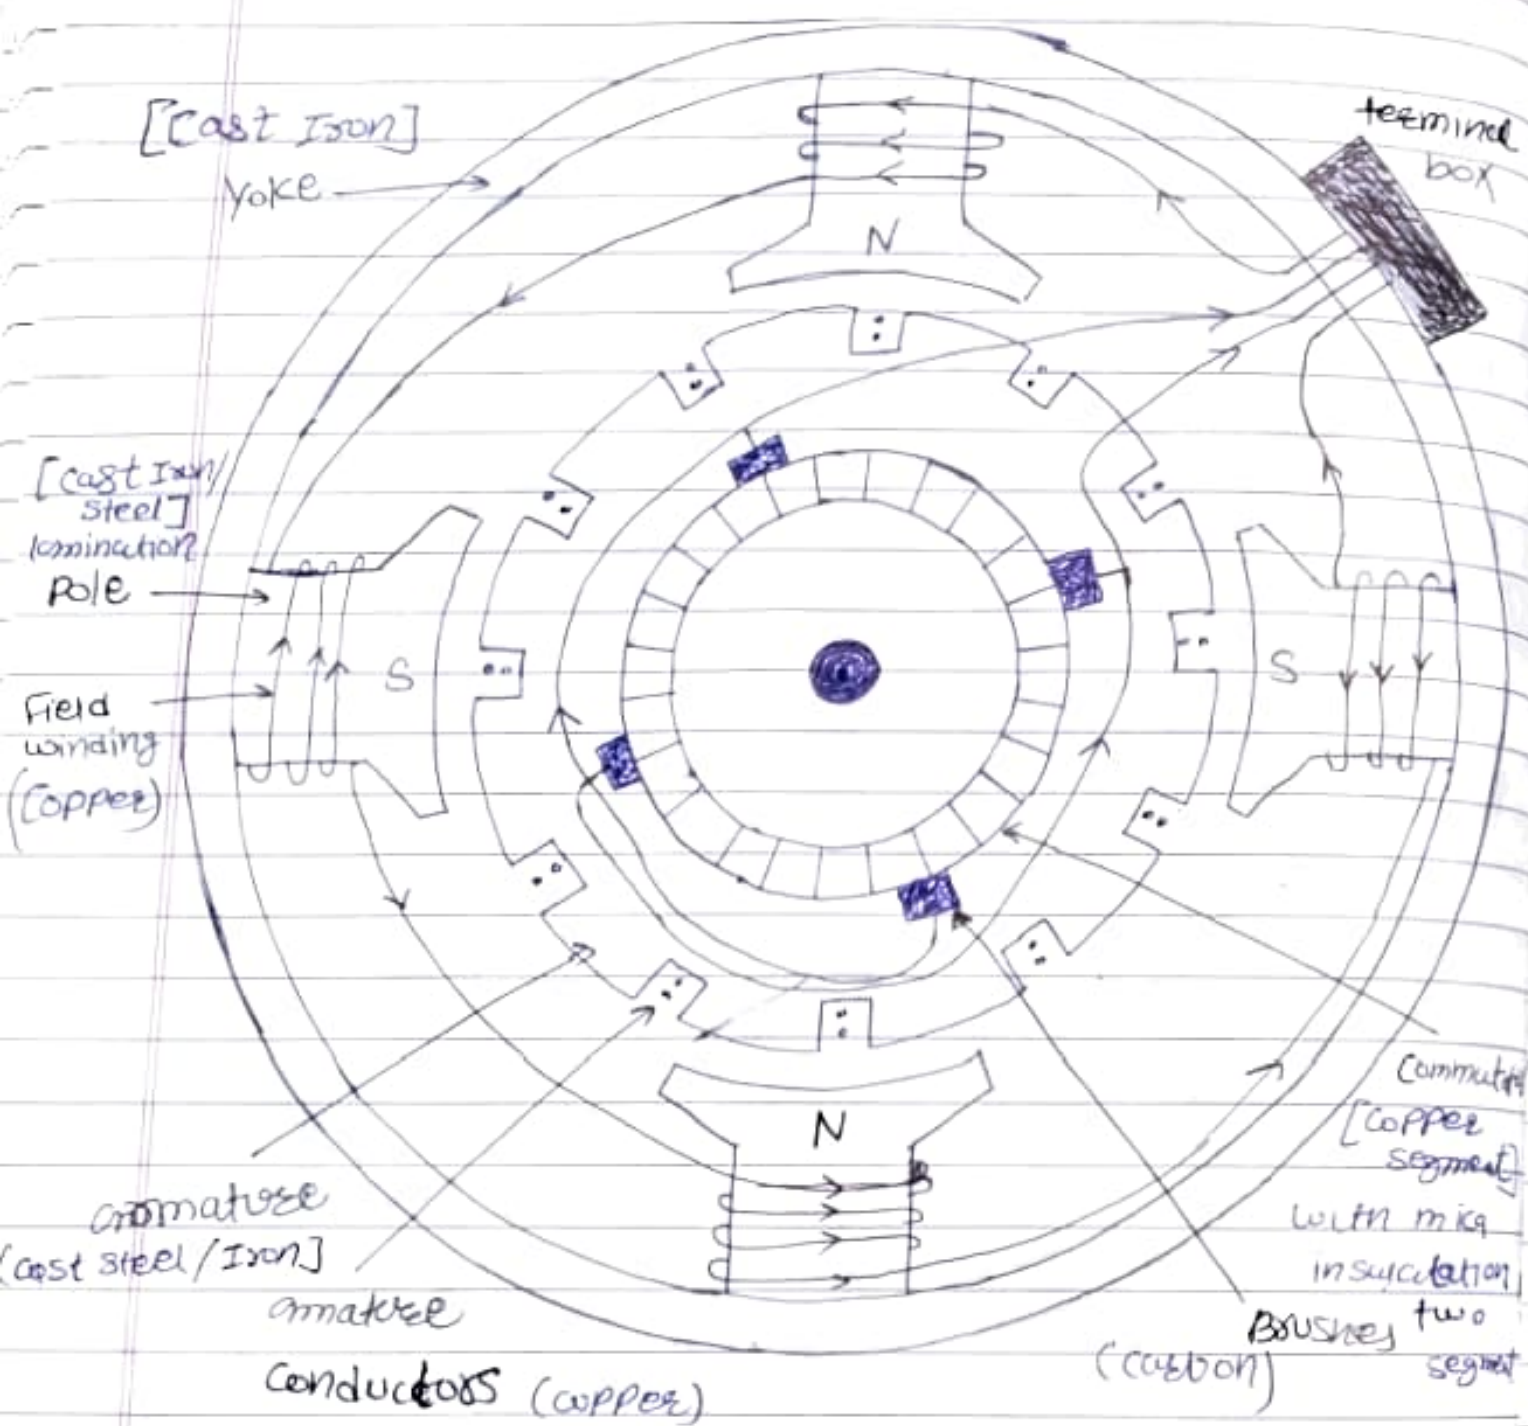 [Cast Iron]
Yoke
terminal
box
N
[Cast Iron/
Steel]
lamination
Pole
S
S
Field
winding
(Copper)
N
armature
(cast steel/Iron]
armature
Conductors (copper)
Commutator
[Copper
segment]
with mica
insulation
two
segment
Brushes
(carbon)